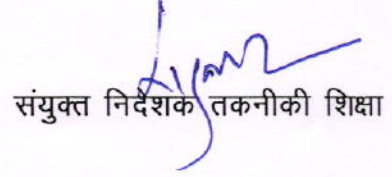 संयुक्त निदेशक तकनीकी शिक्षा